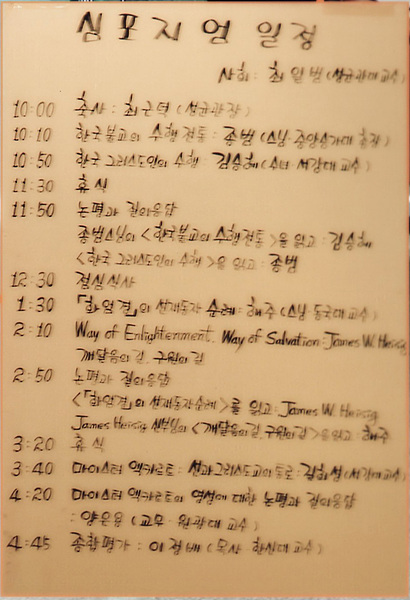 심포지엄 일정
사회: 최일범 (성균관대 교수)
10:00 축사: 최근덕 (성균관장)
10:10 한국불교의 수행전통: 종범 (스님·중앙승가대 총장)
10:50 한국 그리스도인의 수행: 김승혜 (수녀 서강대 교수)
11:30 휴식
11:50 논평과 질의응답
종범스님의 <한국불교의 수행전통>을 읽고: 김승혜
<한국 그리스도인의 수행>을 읽고: 종범
12:30 점심식사
1:30 「화엄경」의 선재동자 순례: 해주 (스님·동국대 교수)
2:10 Way of Enlightenment. Way of Salvation: James W. Heisig
깨달음의 길. 구원의 길
2:50 논평과 질의응답
<「화엄경」의 선재동자순례>를 읽고: James W. Heisig
James Heisig 신부님의 <깨달음의 길. 구원의 길>을 읽고: 해주
3:20 휴식
3:40 마이스터 엑카르트: 선과 그리스도교의 통로: 길희성 (서강대 교수)
4:20 마이스터 엑카르트의 영성에 대한 논평과 질의응답
: 양은용 (교무·원광대 교수)
4:45 종합평가: 이정배 (목사·한신대 교수)